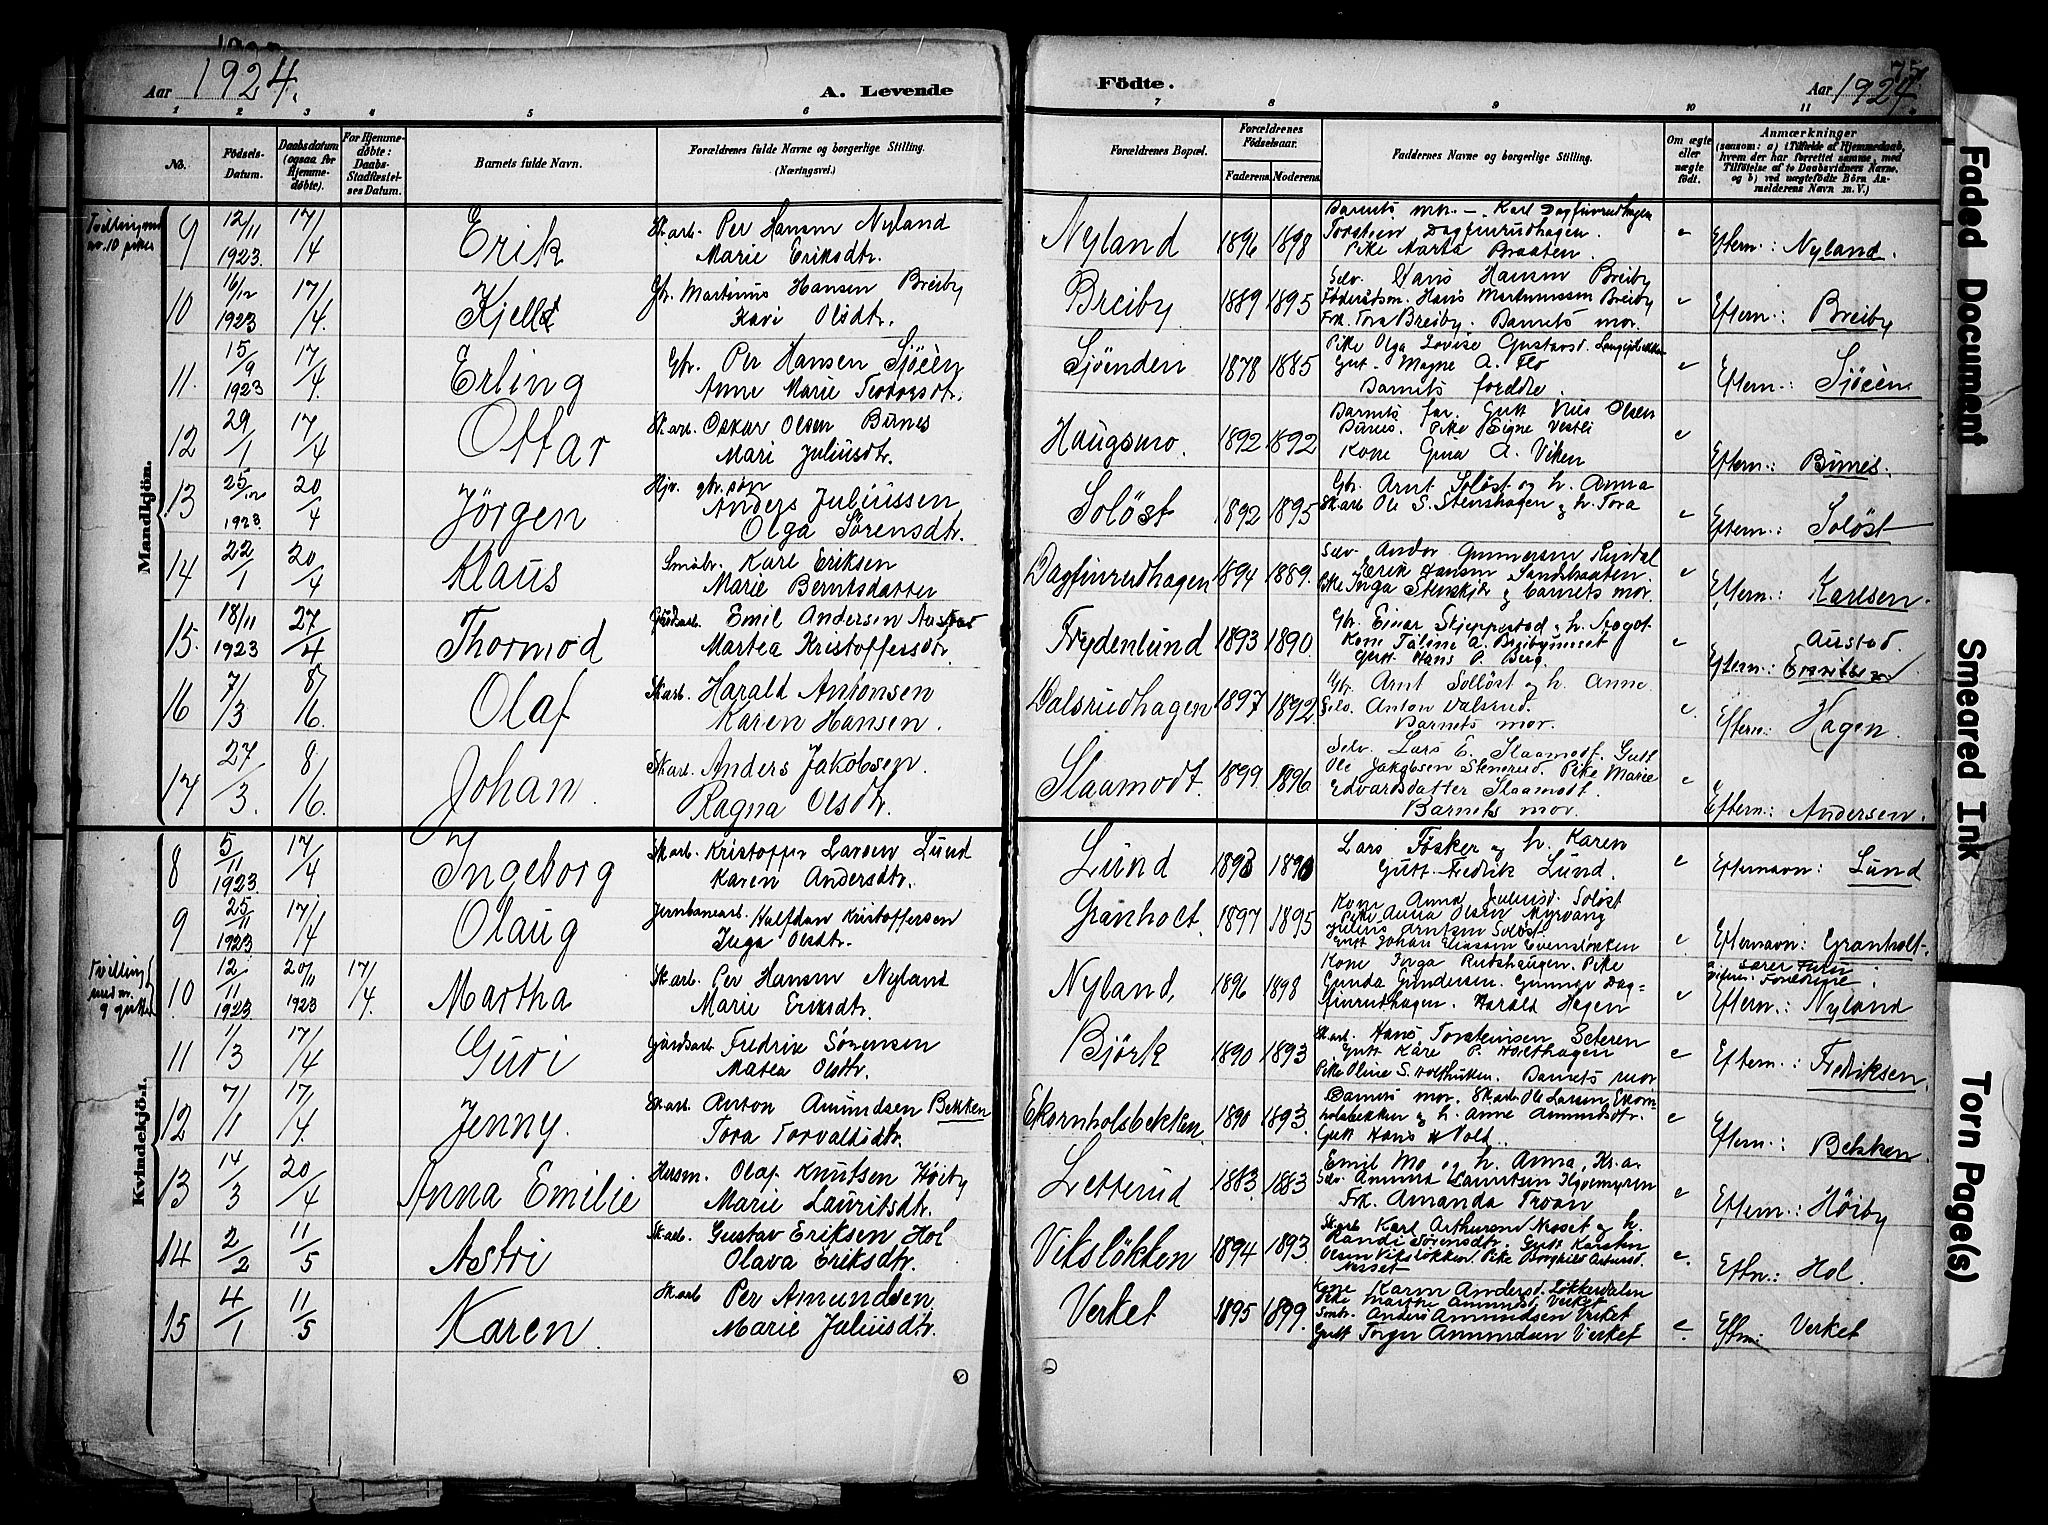 1924.
Aar
A. Levende
1 2 3 4 5 6
No.
Fødsels-Datum.
Daabsdatum (ogsaa for Hjemmedøbte).
For Hjemmedøbte: Daabs-Stadfæstelses Datum.
Barnets fulde Navn.
Forældrenes fulde Navne og borgerlige Stilling.
(Næringsvei.)
Mandkjøn.
9 12/11 1923. 17/4 Erik Skarb. Per Hansen Nyland
Marie Eriksdtr.
10 16/12 1923 17/4. Kjell Gbr. Martinus Hansen Breiby
Kari Olsdtr.
11. 15/9 1923 17/4. Erling Gbr. Per Hansen Sjøèn
Anne Marie Teodorsdtr.
12 29/1 17/4 Ottar Skarb. Oskar Olsen Burnes
Mari Juliusdtr.
13 25/12 1923. 20/4 Jörgen Hjv. gbr.søn
Anders Juliussen
Olga Sørensdtr.
14 22/1 20/4 Klaus Småbr. Karl Eriksen
Marie Berntsdatter
15. 18/11 1923 27/4 Thormod Gårdsarb. Emil Andersen Austad
Martea Kristoffersdtr.
16 7/3 8/6. Olaf Skarb. Harald Antonsen
Karen Hansen.
17 27/3. 8/6. Johan. Skarb. Anders Jakobsen.
Ragna Olsdtr.
Kvindekjön.
8 5/11 1923. 17/4 Ingeborg Skarb. Kristoffer Larsen Lund
Karen Andersdtr.
9 25/11 1923 17/4 Olaug Jernbanearb. Halfdan Kristoffersen
Inga Olsdtr.
Tvilling med nr. 9 gutter
10 12/11 1923 20/11 1923 17/4. Martha Skarb. Per Hansen Nyland
Marie Eriksdtr.
11 1/3 17/4 Guri Gårdsarb. Fredrik Sørensen
Matea Olsdtr.
12 7/1 17/4. Jenny. Skarb. Anton Amundsen Bekken
Tora Torvaldsdtr.
13 14/3 20/4 Anna Emilie Herm. Olaf Knutsen Høiby
Marie Lauritsdtr.
14 2/2 11/5 Astri Skarb. Gustav Eriksen Hol
Olava Eriksdtr.
15 4/1 11/5 Karen. Skarb Per Amundsen
Marie Juliusdtr.
Födte.
75
Aar 1924.
7 8 9 10 11
Forældrenes Bopæl.
Forældrenes Fødselsaar.
Faderens. Moderens.
Faddernes Navne og borgerlige Stilling.
Om ægte eller uægte født.
Anmærkninger
(saasom: a) i Tilfælde af Hjemmedaab, hvem der har forrettet samme, med Tilføielse af to Daabsvidners Navne, og b) ved uægtefødte Børn Anmelderens Navn m. V.)
Nyland 1896 1898 Barnets mor. – Karl Dagfinrudhagen
Torstein Dagfinrudhagen.
Pike Marta Braaten. e Eftern.: Nyland.
Breiby 1889 1895 Selv. Hans Hansen Breiby
Føderådsm. Hans Martinussen Breiby
Frk. Tora Breiby. Barnets mor. e Eftern.: Breiby
Sjöenden 1878 1885 Pike Olga Lovise Gustavsd.
Gut. Magne A. Flo
Barnets foreldre. e Eftern.: Sjöèn
Haugsmo. 1892 1892 Barnets far. Gutt Nils Olsen
Burnes. Pike Signe Vestli
Kone Gina A. Viken e Eftern.: Burnes.
Soløst 1892 1895 Gbr. Arnt Soløst og h. Anna
Skarb Ole S. Stenshagen og h. Tora e Eftern.: Soløst
Dagfinrudhagen 1894 1889. Selv. Andor Gunnersen
Erik Hansen Sandbraaten.
Pike Inga Stenskjer og barnets mor. e Eftern.: Karlsen.
Frydenlund 1893 1890. Gbr. Einar Skjeppestad og h.
Gutt Hans P. Berg. e Austad.
Eftern.:
Dalsrudhagen 1897 1892. Gbr. Arnt Solløst og h. Anne
Selv. Anton Dalsrud.
Barnets mor. e. Eftern: Hagen.
Slaamodt. 1899 1896. Selv. Lars E. Slaamodt. Gutt
Ole Jakobsen Stensrud. Pike Marie
Edvardsdatter Slaamodt.
Barnets mor. e Eftern.: Andersen.
Lund 1893 1890 Lars Fosker og h. Karen
Gutt Fredrik Lund. e Efternavn: Lund
Granholt 1897 1895 Kone Anna Juliusd. Soløst
Pike Anna Olsen Myrvang
Julius Arntsen Soløst.
Gutt Johan Eliassen e Efternavn: Granholt.
Nyland, 1896 1898 Kone Inga Rudshaugen. Pike
Gunda Gundersen. Gunnar Dag=
finrudhagen. Harald Hagen e Eftern.: Nyland
Björk 1890 1893 Skarb. Hans Torsteinsen Seteren
Gutt Kåre P. Holthagen
Pike Oline S. Holthuken. Barnets mor e Eftern.: Fredriksen
Ekornholsbekken. 1890 1893. Barnets mor. Skarb. Ole Larsen, Ekorn-
holsbekken og h. Anne Amundsdtr.
Gutt Hans H Vold. e Eftern.: Bekken.
Letterud 1883 1883 Emil Mo og h. Anna, Kr.a.
Selv. Amund Lauritsen
Frk. Amanda Troan e Eftern.: Høiby
Vikslökken 1894 1893. Skarb Karl Arthursen Nesset og h.
Randi Sörensdtr. Gutt Karsten
Olsen Vikslökken. Pike Borghild
Nesset e. Eftn.: Hol.
Verket 1895 1899. Kone Karen Andersd. Løkkerdalen
Pike Marthe Amundsd. Verket
Småbr. Anders Amundsen Verket
Gutt Torger Amundsen Verket e. Eftn: Verket
Faded Document
Smeared Ink
Torn Page(s)